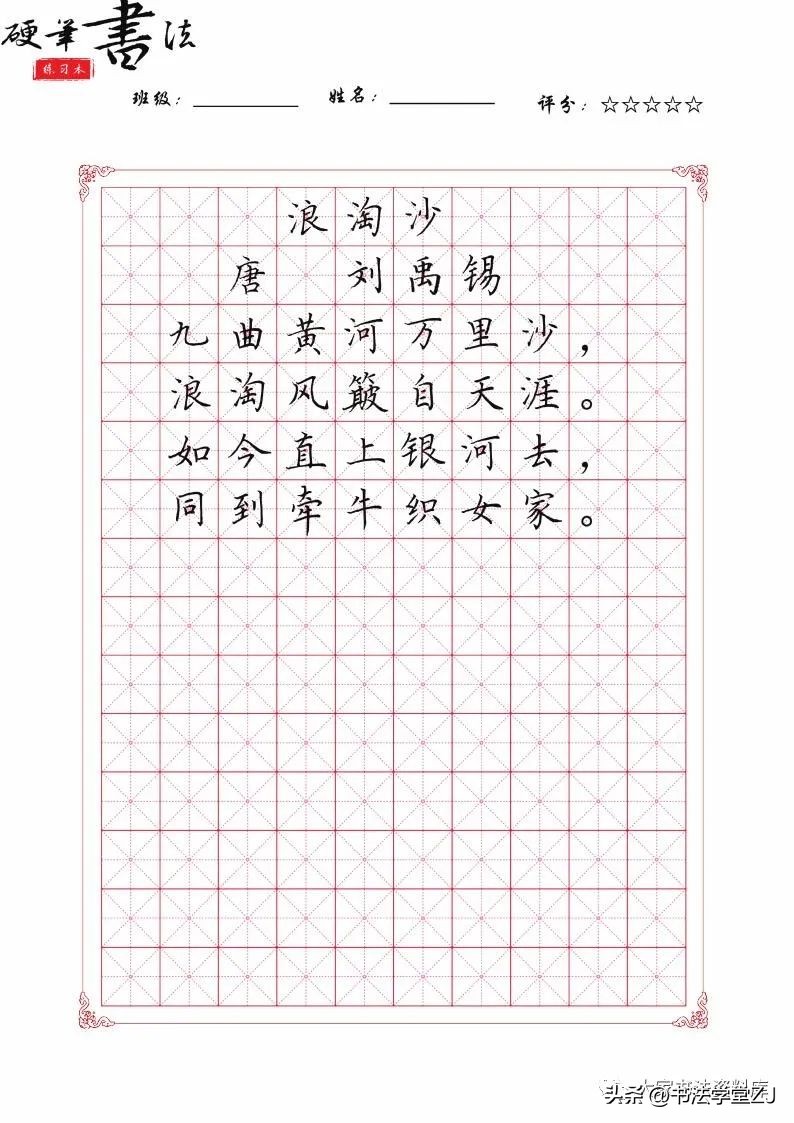 硬筆書法
练习本
班级： 姓名： 评分：☆☆☆☆☆
浪淘沙
唐 刘禹锡
九曲黄河万里沙，
浪淘风簸自天涯。
如今直上银河去，
同到牵牛织女家。
大家书法资料库
头条@书法学堂ZJ